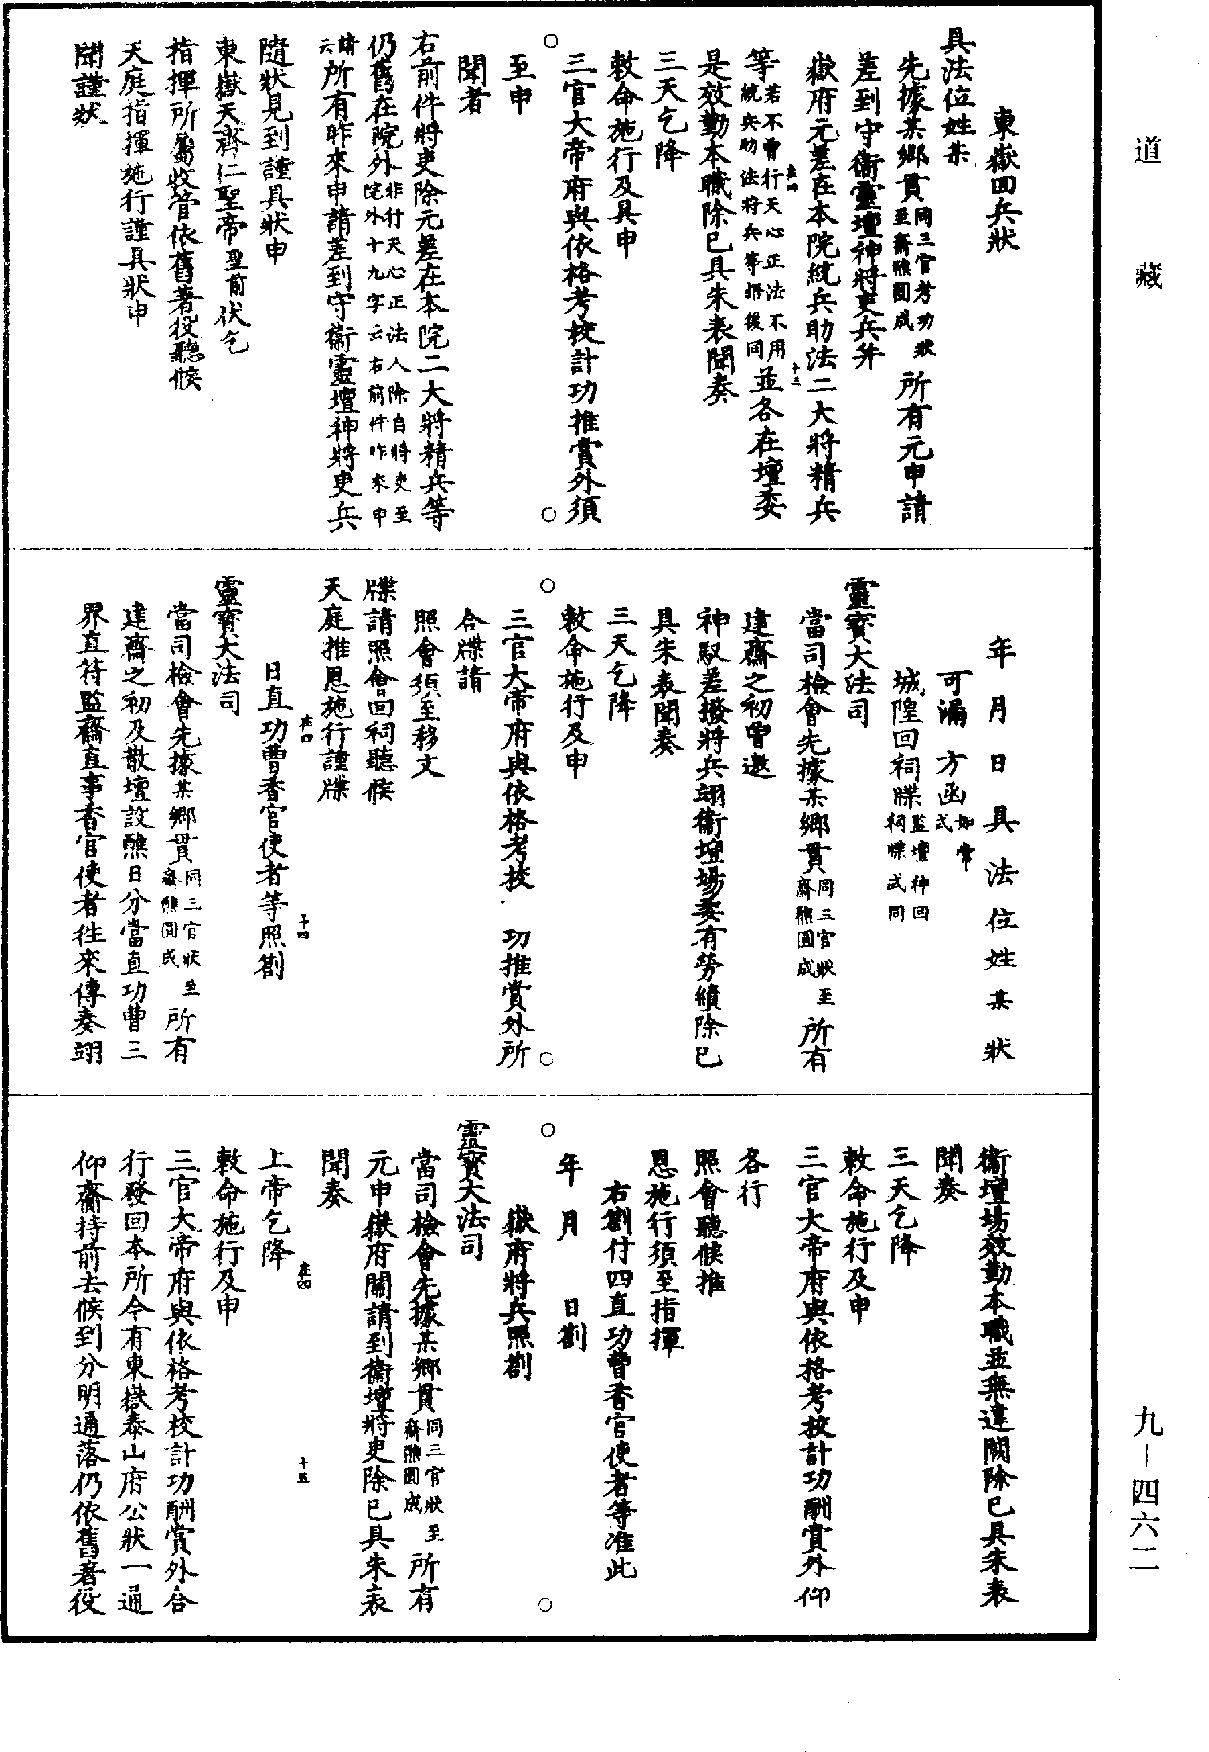 道藏
東嶽回兵狀
具法位姓某
先據某鄉貫同三官考功狀至齋醮圓成所有元申請
差到守衛靈壇神將吏兵并
嶽府元差在本院統兵助法二大將精兵
等若不曾行天心正法不用統兵助法將兵等語後同並各在壇委
是效勤本職除已具朱表聞奏
三天乞降
敕命施行及具申
三官大帝府與依格考校計功推賞外須
至申
聞者
右前件將吏除元差在本院二大將精兵等
仍舊在院外非行天心正法人除自將吏至院外十九字云右前件昨來申
請云所有昨來申請差到守衛靈壇神將吏兵
隨狀見到謹具狀申
東嶽天齊仁聖帝聖前伏乞
指揮所屬收管依舊著役聽候
天庭指揮施行謹具狀申
聞謹狀
年月日具法位姓某狀
可漏方函如常式
城隍回祠牒監壇神回祠牒式同
靈寶大法司
當司檢會先據某鄉貫同三官狀至齋醮圓成所有
建齋之初曾邀
神馭差撥將兵翊衛壇場委有勞績除已
具朱表聞奏
三天乞降
敕命施行及申
三官大帝府與依格考校功推賞外所
合牒請
照會須至移文
牒請照會回祠聽候
天庭推恩施行謹牒
日直功曹香官使者等照劄
靈寶大法司
當司檢會先據某鄉貫同三官狀至齋醮圓成所有
建齋之初及散壇設醮日分當直功曹三
界直符監齋直事香官使者往來傳奏翊
衛壇場效勤本職並無違闕除已具朱表
聞奏
三天乞降
敕命施行及申
三官大帝府與依格考校計功酬賞外仰
各行
照會聽候推
恩施行須至指揮
右劄付四直功曹香官使者等准此
年月日劄
嶽府將兵照劄
靈寶大法司
當司檢會先據某鄉貫同三官狀至齋醮圓成所有
元申嶽府關請到衛壇將吏除已具朱表
聞奏
上帝乞降
敕命施行及申
三官大帝府與依格考校計功酬賞外合
行發回本所今有東嶽泰山府公狀一通
仰齎持前去候到分明通落仍依舊著役
九－四六二